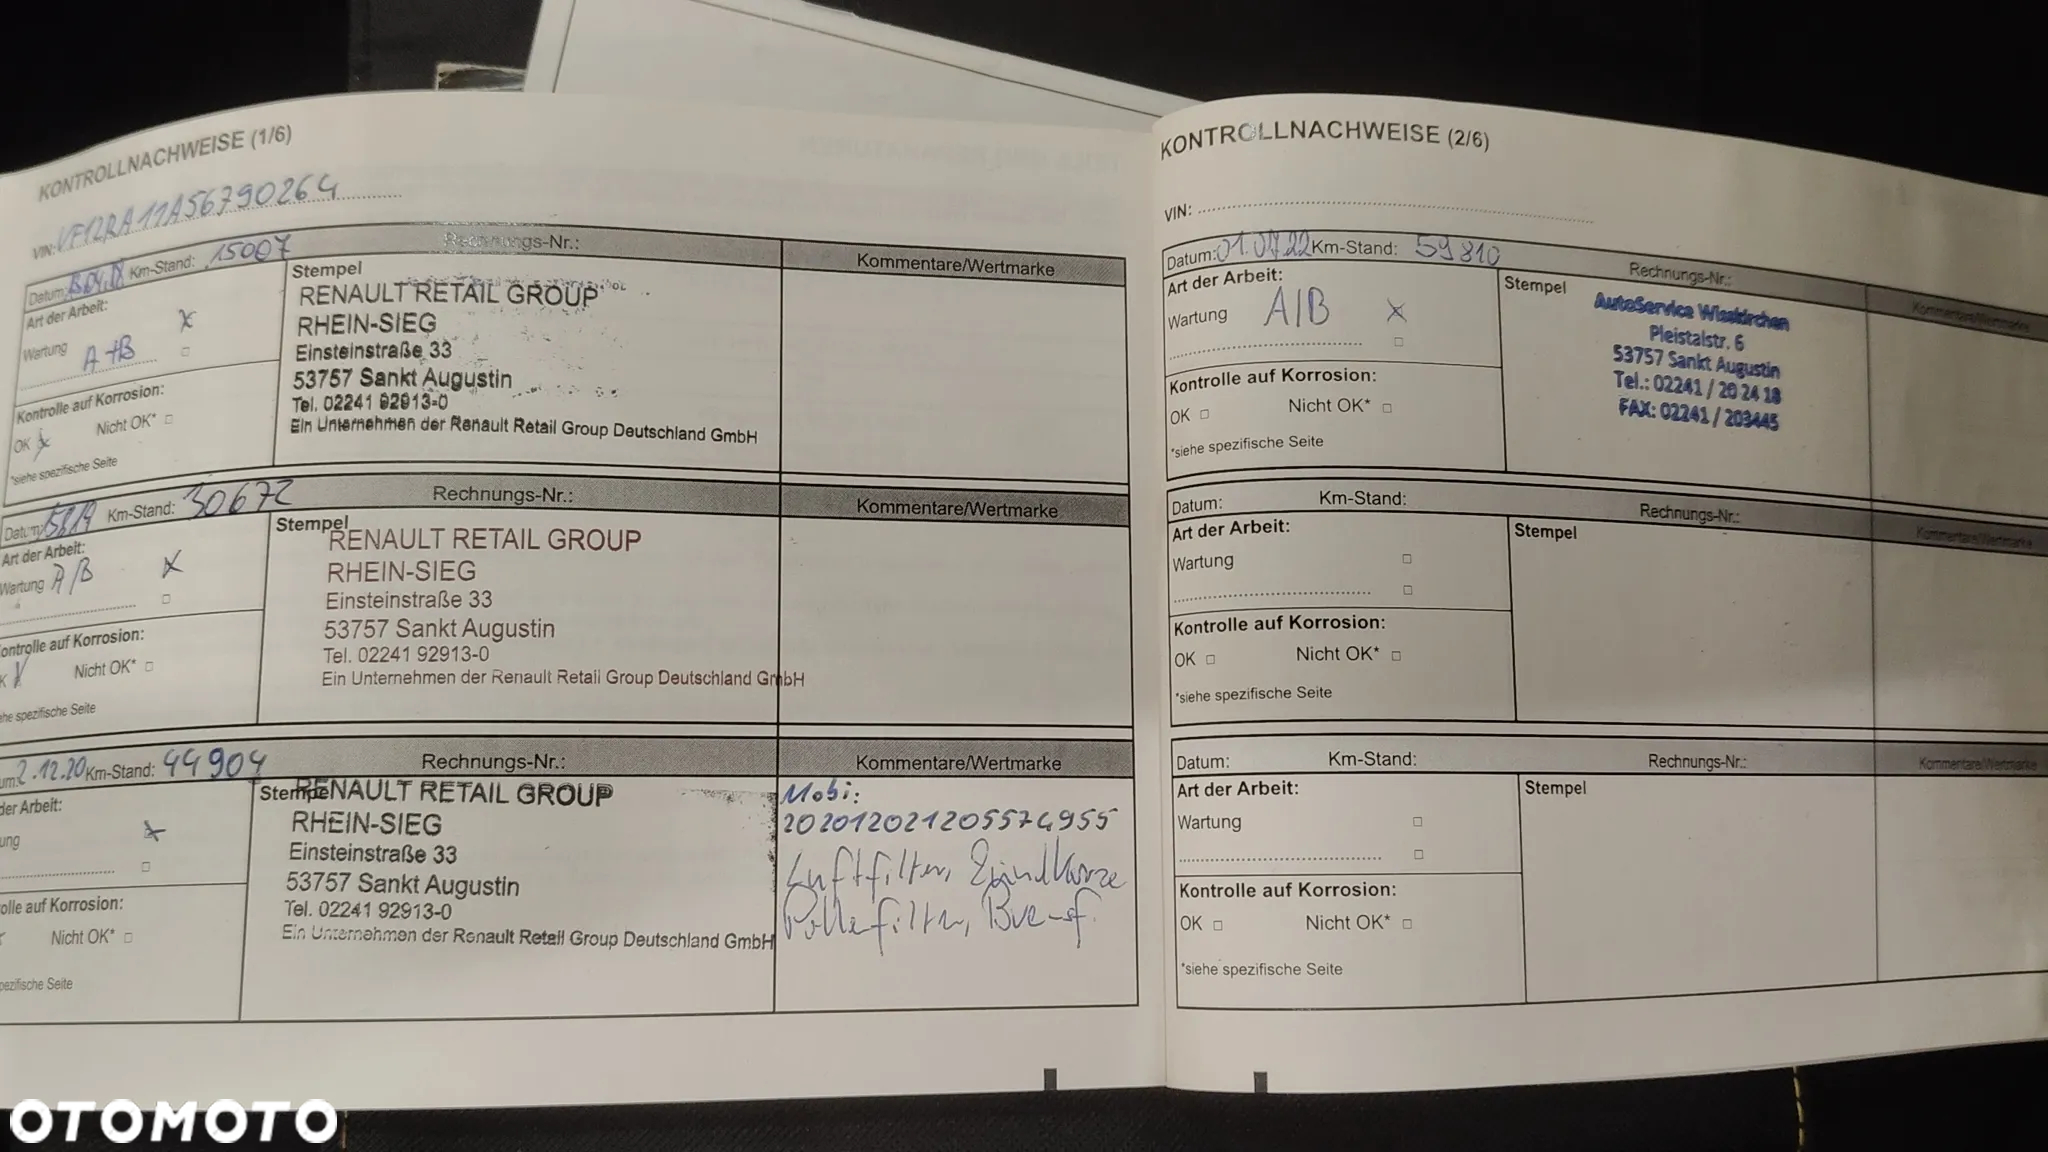 KONTROLLNACHWEISE (1/6)
VIN: VF12RA11A56790264
Datum: Km-Stand: 15007 Rechnungs-Nr.: Kommentare/Wertmarke
Art der Arbeit:
Wartung A+B x
Kontrolle auf Korrosion:
OK x Nicht OK*
*siehe spezifische Seite
Stempel
RENAULT RETAIL GROUP
RHEIN-SIEG
Einsteinstraße 33
53757 Sankt Augustin
Tel. 02241 92913-0
Ein Unternehmen der Renault Retail Group Deutschland GmbH
Datum: Km-Stand: 30672 Rechnungs-Nr.: Kommentare/Wertmarke
Art der Arbeit:
Wartung A/B x
ontrolle auf Korrosion:
K Nicht OK*
ehe spezifische Seite
Stempel
RENAULT RETAIL GROUP
RHEIN-SIEG
Einsteinstraße 33
53757 Sankt Augustin
Tel. 02241 92913-0
Ein Unternehmen der Renault Retail Group Deutschland GmbH
um: 2.12.20 Km-Stand: 44904 Rechnungs-Nr.: Kommentare/Wertmarke
der Arbeit:
ung x
olle auf Korrosion:
Nicht OK*
pezifische Seite
Stempel
RENAULT RETAIL GROUP
RHEIN-SIEG
Einsteinstraße 33
53757 Sankt Augustin
Tel. 02241 92913-0
Ein Unternehmen der Renault Retail Group Deutschland GmbH
Mobi:
Luftfilter,
Pollenfilter,
KONTROLLNACHWEISE (2/6)
VIN:
Datum: 01.07.22 Km-Stand: 59810 Rechnungs-Nr.: Kommentare/Wertmarke
Art der Arbeit:
Wartung A/B x
Kontrolle auf Korrosion:
OK Nicht OK*
*siehe spezifische Seite
Stempel
AutoService Wisskirchen
Pleistalstr. 6
53757 Sankt Augustin
Tel.: 02241 / 20 24 18
FAX: 02241 / 203445
Datum: Km-Stand: Rechnungs-Nr.: Kommentare/Wertmarke
Art der Arbeit:
Wartung
Kontrolle auf Korrosion:
OK Nicht OK*
*siehe spezifische Seite
Stempel
Datum: Km-Stand: Rechnungs-Nr.: Kommentare/Wertmarke
Art der Arbeit:
Wartung
Kontrolle auf Korrosion:
OK Nicht OK*
*siehe spezifische Seite
Stempel
OTOMOTO